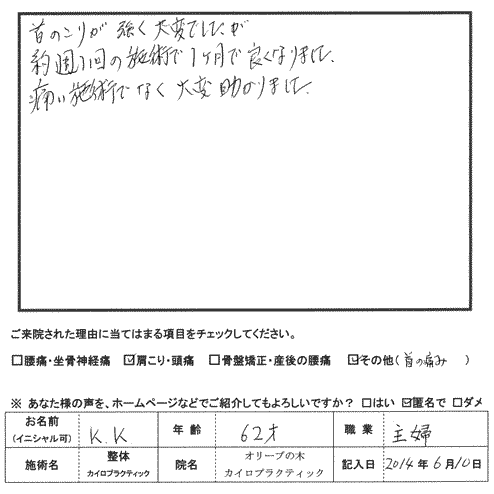 首のこりが強く大変でしたが
約週1回の施術で1ヶ月で良くなりました。
痛い施術でなく大変助かりました。
ご来院された理由に当てはまる項目をチェックしてください。
□腰痛・坐骨神経痛 ☑肩こり・頭痛 □骨盤矯正・産後の腰痛 ☑その他(首の痛み)
※ あなた様の声を、ホームページなどでご紹介してもよろしいですか? □はい ☑匿名で □ダメ
お名前 (イニシャル可) K.K 年齢 62才 職業 主婦
施術名 整体 カイロプラクティック 院名 オリーブの木 カイロプラクティック 記入日 2014年6月10日